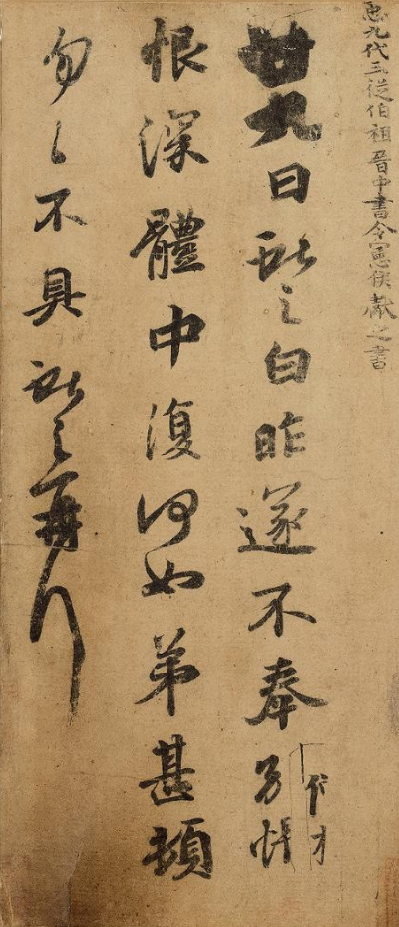 𢘑九代三從伯祖晉中書令憲侯獻之書
廿九日獻之白昨遂不奉別悵
恨深體中復何如弟甚頓
匆々不具獻之再拜